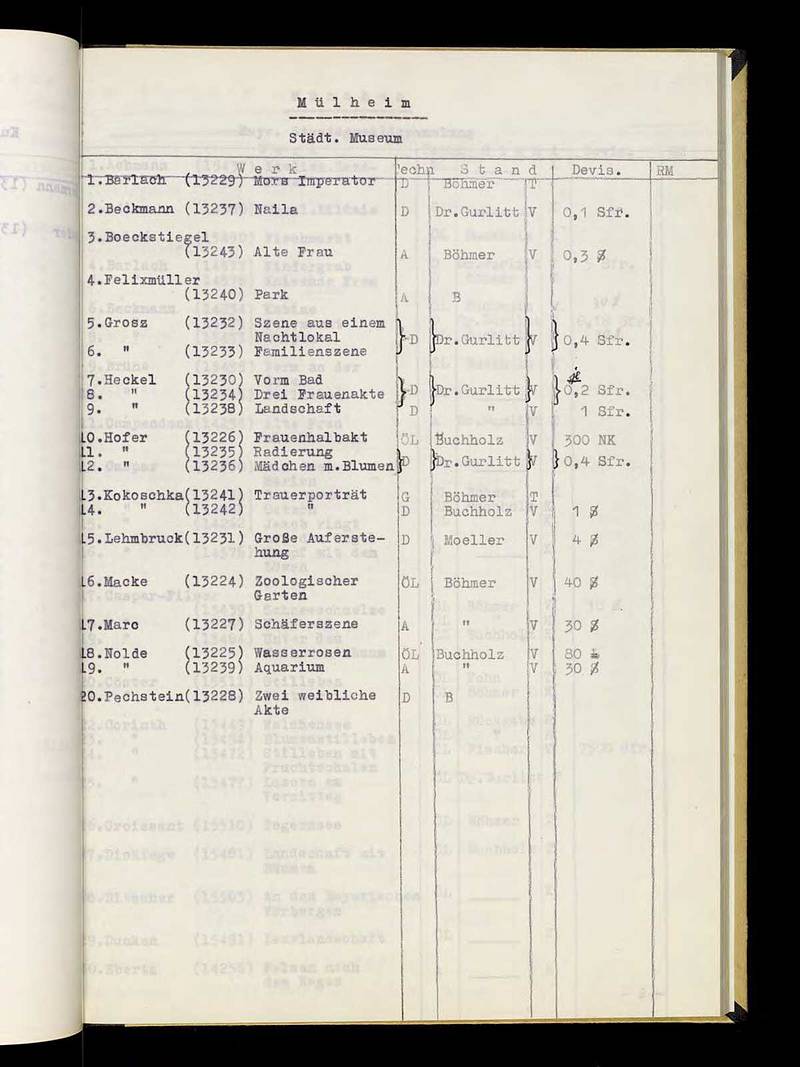 Mülheim
Städt. Museum
Werk 'echn Stand Devis. RM
1.Barlach (13229) Mors Imperator D Böhmer T
2.Beckmann (13237) Naila D Dr.Gurlitt V 0,1 Sfr.
3.Boeckstiegel
(13243) Alte Frau A Böhmer V 0,3 $
4.Felixmüller
(13240) Park A B
5.Grosz (13232) Szene aus einem
Nachtlokal } D } Dr.Gurlitt } V } 0,4 Sfr.
6. " (13233) Familienszene
7.Heckel (13230) Vorm Bad
8. " (13234) Drei Frauenakte } D } Dr.Gurlitt } V } 0,2 Sfr.
9. " (13238) Landschaft D " V 1 Sfr.
10.Hofer (13226) Frauenhalbakt ÖL Buchholz V 300 NK
11. " (13235) Radierung
12. " (13236) Mädchen m.Blumen } D } Dr.Gurlitt } V } 0,4 Sfr.
13.Kokoschka(13241) Trauerporträt G Böhmer T
14. " (13242) " D Buchholz V 1 $
15.Lehmbruck(13231) Große Auferste- D Moeller V 4 $
hung
16.Macke (13224) Zoologischer ÖL Böhmer V 40 $
Garten
17.Marc (13227) Schäferszene A " V 30 $
18.Nolde (13225) Wasserrosen ÖL Buchholz V 80
19. " (13239) Aquarium A " V 30 $
20.Pechstein(13228) Zwei weibliche D B
Akte